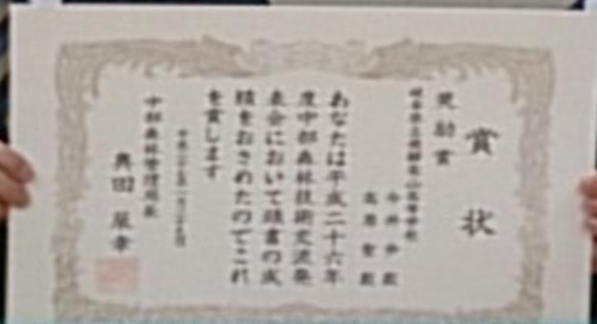 賞状
奨励賞
岐阜県立飛騨高山高等学校
今井 歩 殿
高原 殿
あなたは平成二十六年
度中部森林技術交流発
表会において頭書の成
績をおさめたのでこれ
を賞します
平成二十七年一月二十九日
中部森林管理局長
奥田 辰幸